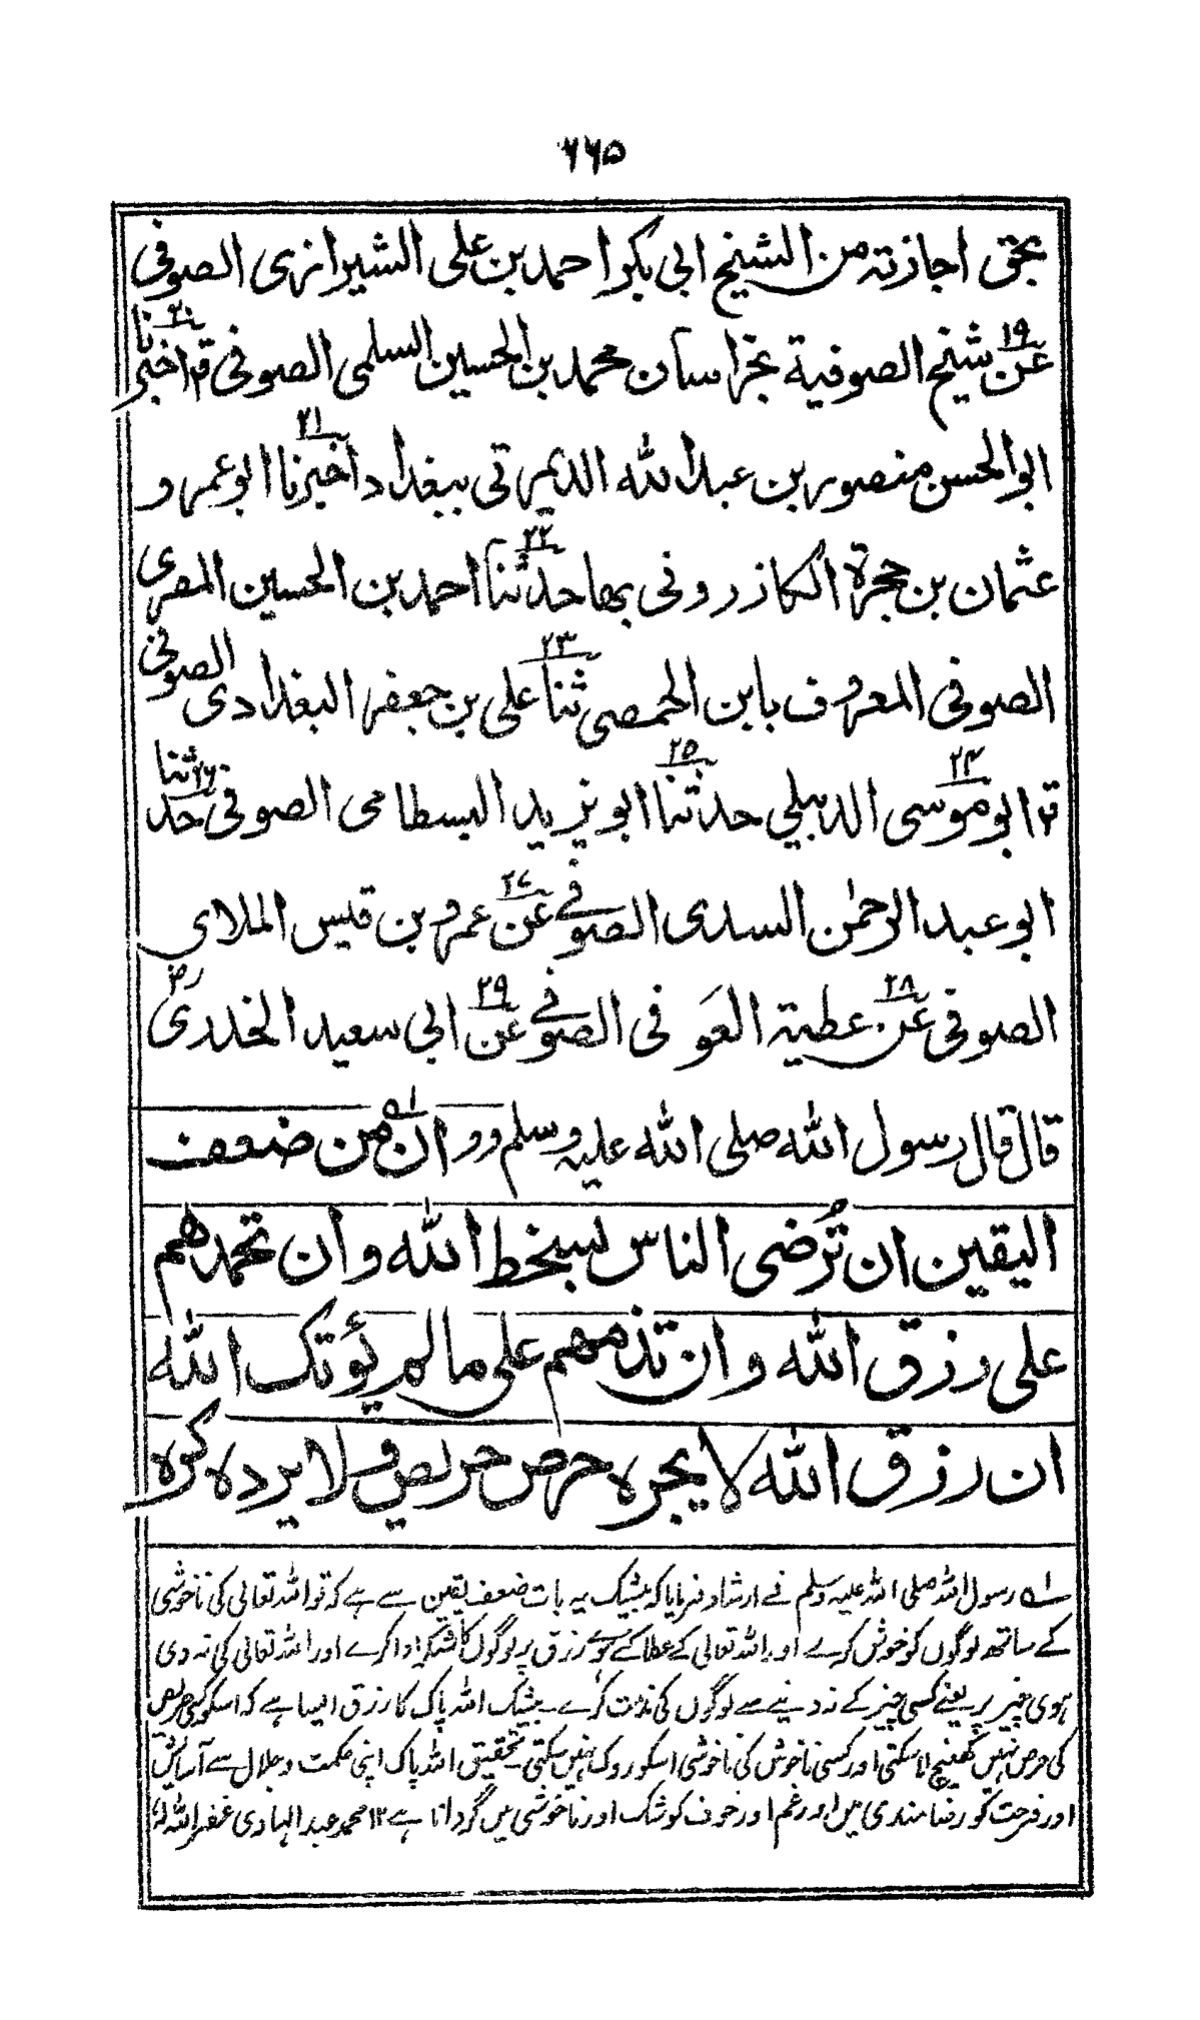 ۶۶۵
بحق اجازته من الشيخ ابي بكر احمد بن علي الشيرازي الصوفي
۱۹ عن شيخ الصوفية بخراسان محمد بن الحسين السلمي الصوفي قم ۲۰ اخبرنا
ابوالحسن منصور بن عبد الله الديمرتي ببغداد ۲۱ اخبرنا ابوعمرو
عثمان بن حجرة الكازروني بها ۲۲ حدثنا احمد بن الحسين المصري
الصوفي المعروف بابن الحمصي ۲۳ ثنا علي بن جعفر البغدادي الصوفي
قم ۲۴ ابوموسى الدبيلي ۲۵ حدثنا ابو يزيد البسطامي الصوفي ۲۶ حدثنا
ابوعبد الرحمٰن السدي الصوفي ۲۷ عن عمرو بن قيس الملاي
الصوفي ۲۸ عن عطية العَوفي الصوفي ۲۹ عن ابي سعيد الخدري رض
قال قال رسول الله صلى الله عليه وسلم وو ان من ضعف
اليقين ان تُرضى الناس بسخط الله وان تحمدهم
على رزق الله وان تذمهم على مالم يؤتك الله
ان رزق الله لا يجره حرص حريص ولا يرده كره
۱ه رسول اللہ صلی اللہ علیہ وسلم نے ارشاد فرمایا کہ بیشک یہ بات ضعف یقین سے ہے کہ تو اللہ تعالی کی ناخوشی
کے ساتھ لوگوں کو خوش کرے اور اللہ تعالی کے عطا کئے ہوئے رزق پر لوگوں کا شکر ادا کرے اور اللہ تعالی کی نہ دی
ہوی چیز پر یعنے کسی چیز کے نہ دینے سے لوگوں کی مذمت کرے۔ بیشک اللہ پاک کا رزق ایسا ہے کہ اسکو کسی حریص
کی حرص نہیں کھینچ لا سکتی اور کسی ناخوش کی ناخوشی اسکو روک نہیں سکتی۔ تحقیق اللہ پاک اپنی حکمت و جلال سے آسائش
اور فرحت کو رضا مندی میں اور غم اور خوف کو شک اور ناخوشی میں گردانا ہے ۱۲ محمد عبد الہادی غفر اللہ لہ